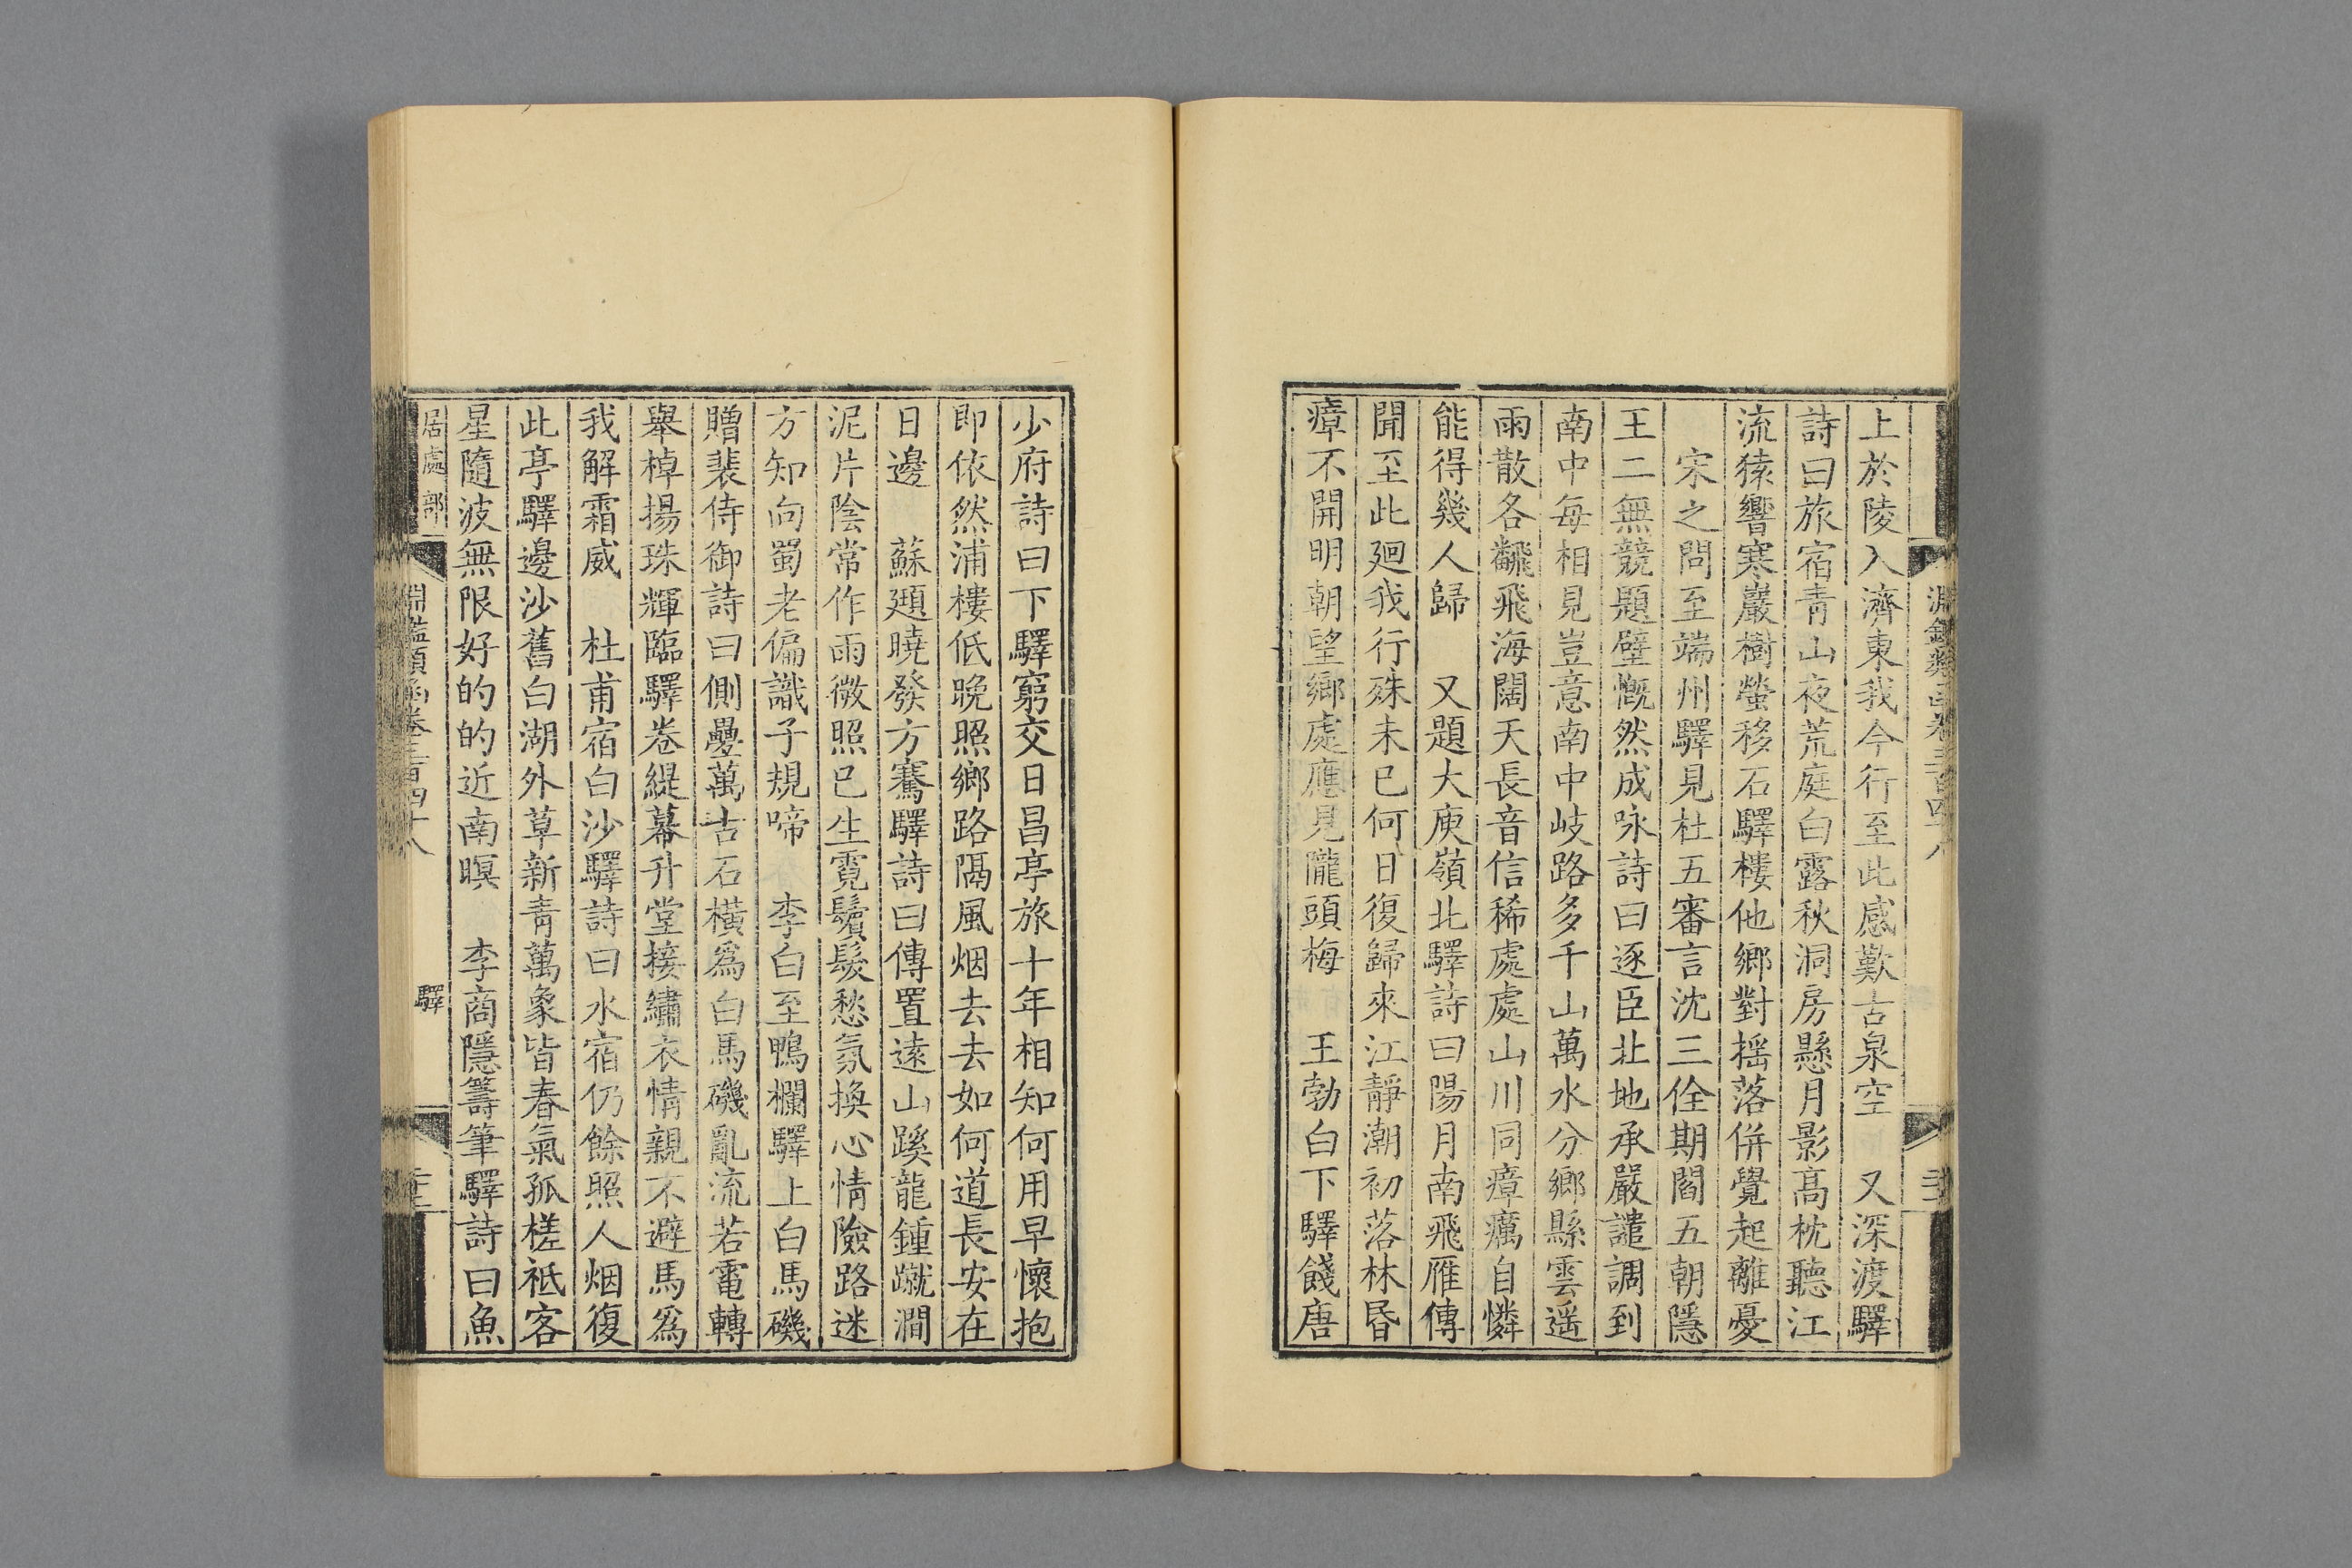 上於陵入濟東我今行至此感歎古泉空　又深渡驛
詩曰旅宿青山夜荒庭白露秋洞房懸月影高枕聽江
流猿響寒巖樹螢移石驛樓他鄉對搖落併覺起離憂
宋之問至端州驛見杜五審言沈三佺期閻五朝隱
王二無競題壁慨然成咏詩曰逐臣北地承嚴譴調到
南中每相見豈意南中岐路多千山萬水分鄉縣雲遥
雨散各飜飛海闊天長音信稀處處山川同瘴癘自憐
能得幾人歸　又題大庾嶺北驛詩曰陽月南飛雁傳
聞至此廻我行殊未已何日復歸來江靜潮初落林昏
瘴不開明朝望鄉處應見隴頭梅　王勃白下驛餞唐
少府詩曰下驛窮交日昌亭旅十年相知何用早懷抱
即依然浦樓低晚照鄉路隔風烟去去如何道長安在
日邊　蘇頲曉發方騫驛詩曰傳置遠山蹊龍鍾蹴澗
泥片陰常作雨微照已生霓鬢髮愁氛換心情險路迷
方知向蜀老偏識子規啼　李白至鴨欄驛上白馬磯
贈裴侍御詩曰側疊萬古石橫爲白馬磯亂流若電轉
舉棹揚珠輝臨驛卷緹幕升堂接繡衣情親不避馬爲
我解霜威　杜甫宿白沙驛詩曰水宿仍餘照人烟復
此亭驛邊沙舊白湖外草新青萬象皆春氣孤槎祗客
星隨波無限好的的近南暝　李商隱籌筆驛詩曰魚
居處部
淵鑑類函卷三百四十八
驛